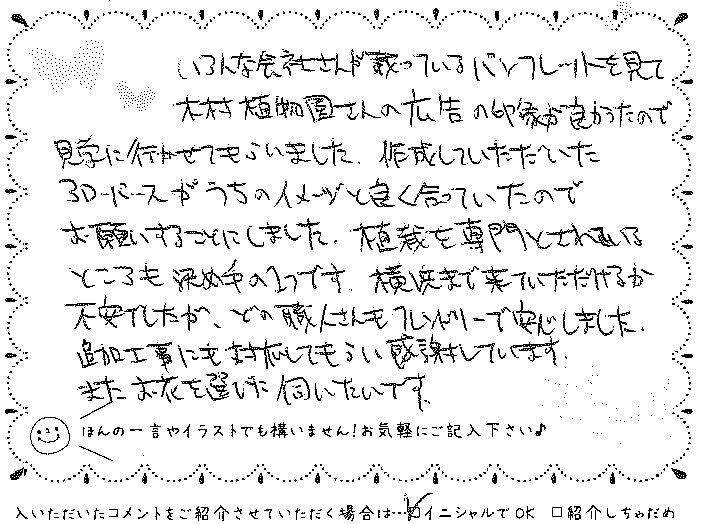 いろんな会社さんが載っているパンフレットを見て
木村植物園さんの広告の印象が良かったので
見学に行かせてもらいました。作成していただいた
3Dパースがうちのイメージと良く合っていたので
お願いすることにしました。植栽を専門とされている
ところも決め手の1つです。横浜まで来ていただけるか
不安でしたが、どの職人さんもフレンドリーで安心しました。
追加工事にも対応してもらい感謝しています。
またお花を選びに伺いたいです。
ほんの一言やイラストでも構いません!お気軽にご記入下さい♪
入いただいたコメントをご紹介させていただく場合は…☑イニシャルでOK ☐紹介しちゃだめ